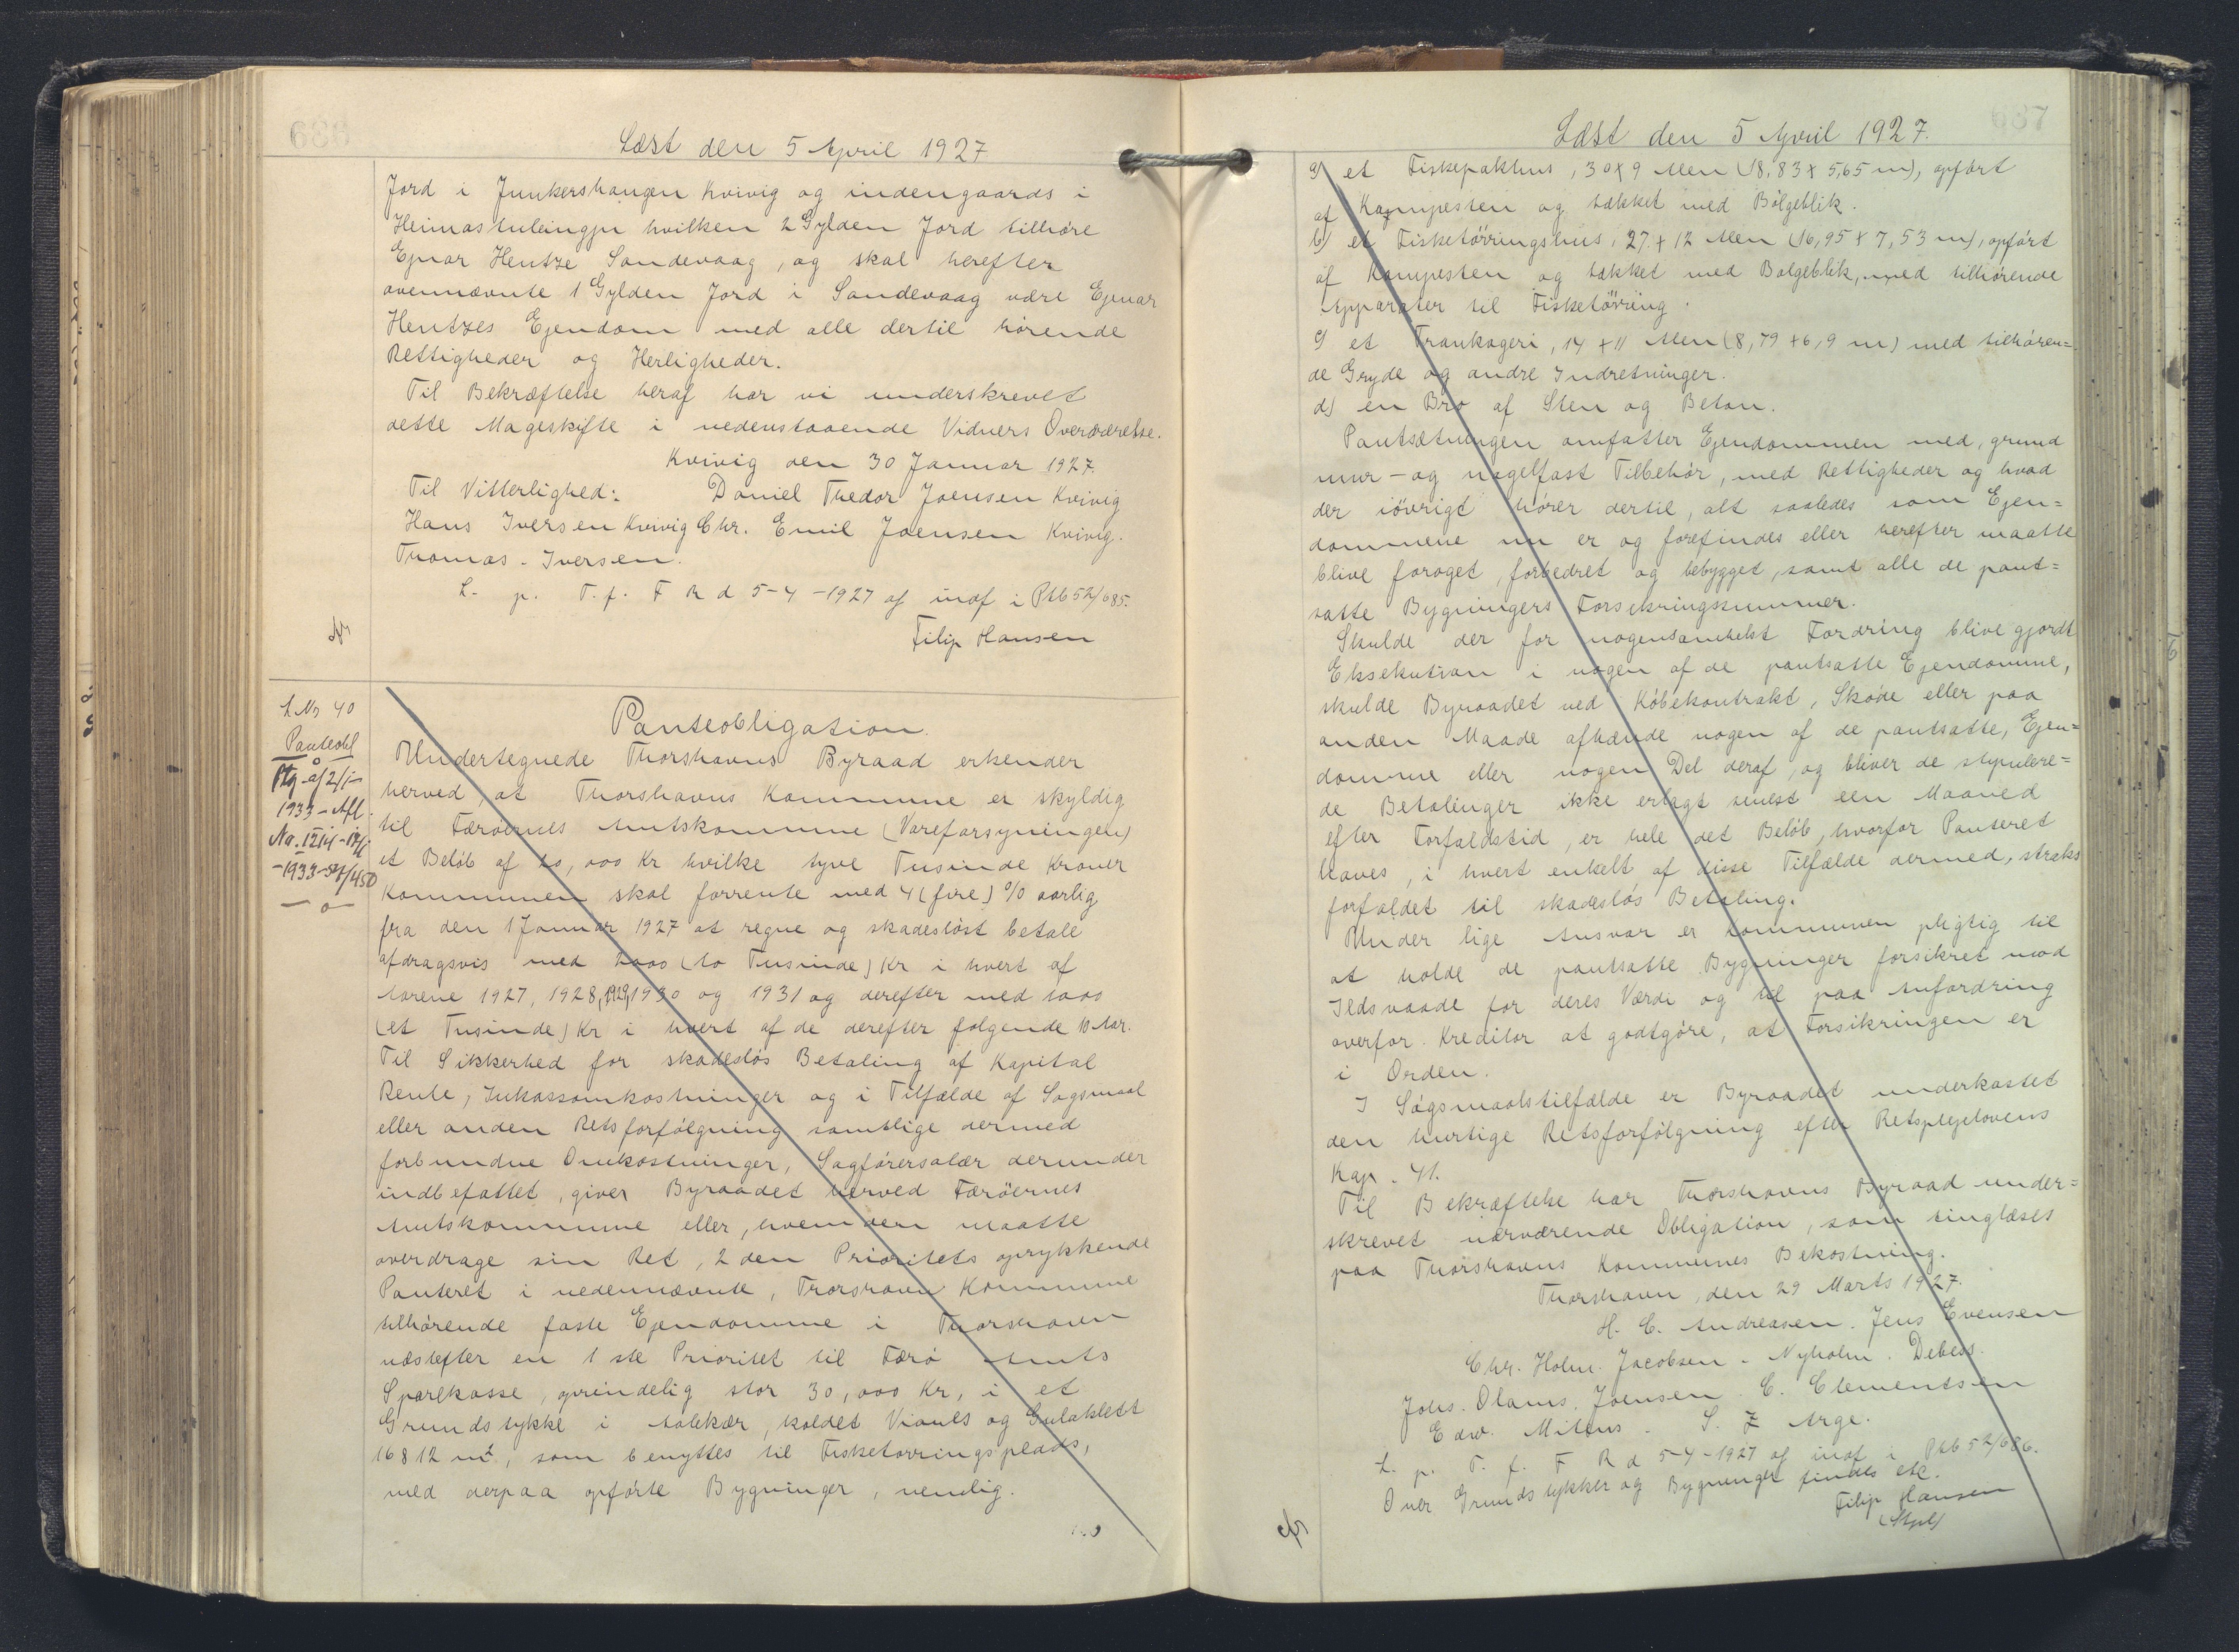 686
Læst den 5 April 1927
Jord i Junkershaugen Kvivig og indengaards i
Heimastuleingju hvilken 2 Gylden Jord tilhøre
Ejnar Hentze Sandevaag, og skal herefter
ovennævnte 1 Gylden Jord i Sandevaag være Ejnar
Hentzes Ejendom med alle dertil hørende
Rettigheder og Herligheder.
Til Bekræftelse heraf har vi underskrevet
dette Mageskifte i nedenstaaende Vidners Overværelse.
Kvivig den 30 Januar 1927.
Til Vitterlighed: Daniel Thedor Joensen Kvivig
Hans Iversen Kvivig Chr. Emil Joensen Kvivig.
Thomas Iversen.
L. p. T. f. F R d 5-4-1927 af indf i Ptb 52/685.
Filip Hansen
L Nr 40
Panteobl
Ptg af 2/1-
1933 - Afl.
No. 1214 -
-1933- /450
Panteobligation.
Undertegnede Thorshavns Byraad erkender
herved, at Thorshavns Kommune er skyldig
til Færöernes Amtskommune (Vareforsyningen)
et Beløb af 20,000 Kr hvilke tyve Tusinde Kroner
Kommunen skal forrente med 4 (fire) % aarlig
fra den 1 Januar 1927 at regne og skadesløst betale
afdragsvis med 2000 (to Tusinde) Kr i hvert af
Aarene 1927, 1928, 1929, 1930 og 1931 og derefter med 1000
(et Tusinde) Kr i hvert af de derefter følgende 10 Aar.
Til Sikkerhed for skadesløs Betaling af Kapital
Rente, Inkassomkostninger og i Tilfælde af Søgsmaal
eller anden Retsforfølgning samtlige dermed
forbundne Omkostninger, Sagførersalær derunder
indbefattet, giver Byraadet herved Færöernes
Amtskommune eller, hvem den maatte
overdrage sin Ret, 2 den Prioritets oprykkende
Panteret i nedennævnte, Thorshavn Kommune
tilhørende faste Ejendomme i Thorshavn
næstefter en 1 ste Prioritet til Færø Amts
Sparekasse, oprindelig stor 30,000 Kr, i et
Grundstykke i Aalekær, kaldet Vianes og Gulaklett
16812 m², som benyttes til Fisketørringsplads,
med derpaa opførte Bygninger, nemlig.
687
Læst den 5 April 1927.
a) et Fiskepakhus, 30 x 9 Alen (18,83 x 5,65 m), opført
af Kampesten og tækket med Bølgeblik.
b) et Fisketørringshus, 27 x 12 Alen (16,95 x 7,53 m), opført
af Kampesten og tækket med Bølgeblik, med tilhørende
Apparater til Fisketørring.
c) et Trankogeri, 14 x 11 Alen (8,79 x 6,9 m) med tilhøren=
de Gryde og andre Indretninger.
d) en Bro af Sten og Beton.
Pantsætningen omfatter Ejendommen med, grund
mur- og nagelfast Tilbehør, med Rettigheder og hvad
der iøvrigt hører dertil, alt saaledes som Ejen=
dommene nu er og forefindes eller herefter maatte
blive foroget, forbedret og bebygget, samt alle de pant=
satte Bygningers Forsikringssummer.
Skulde der for nogensomhelst Fordring blive gjordt
Eksekution i nogen af de pantsatte Ejendomme,
skulde Byraadet ved Købekontrakt, Skøde eller paa
anden Maade afhænde nogen af de pantsatte, Ejen=
domme eller nogen Del deraf, og bliver de stipulere=
de Betalinger ikke erlagt senest een Maaned
efter Forfaldstid, er hele det Beløb, hvorfor Panteret
haves, i hvert enkelt af disse Tilfælde dermed, straks
forfaldet til skadesløs Betaling.
Under lige Ansvar er Kommunen pligtig til
at holde de pantsatte Bygninger forsikret mod
Ildsvaade for deres Værdi og til paa Anfordring
overfor Kreditor at godtgøre, at Forsikringen er
i Orden.
I Søgsmaalstilfælde er Byraadet underkastet
den hurtige Retsforfølgning efter Retsplejelovens
Kap. 41.
Til Bekræftelse har Thorshavns Byraad under=
skrevet nærværende Obligation, som tinglæses
paa Thorshavns Kommunes Bekostning.
Thorshavn, den 29 Marts 1927.
H. C. Andreasen. Jens Evensen
Chr. Holm. Jacobsen. Nyholm. Debess.
Johs. Olaius. Joensen. C. Clementsen
Edw. Mitens. S. Z Arge.
L. p. T. f. F R d 5-4-1927 af indf i Ptb 52/686.
Over Grundstykker og Bygninger findes etc.
Filip Hansen